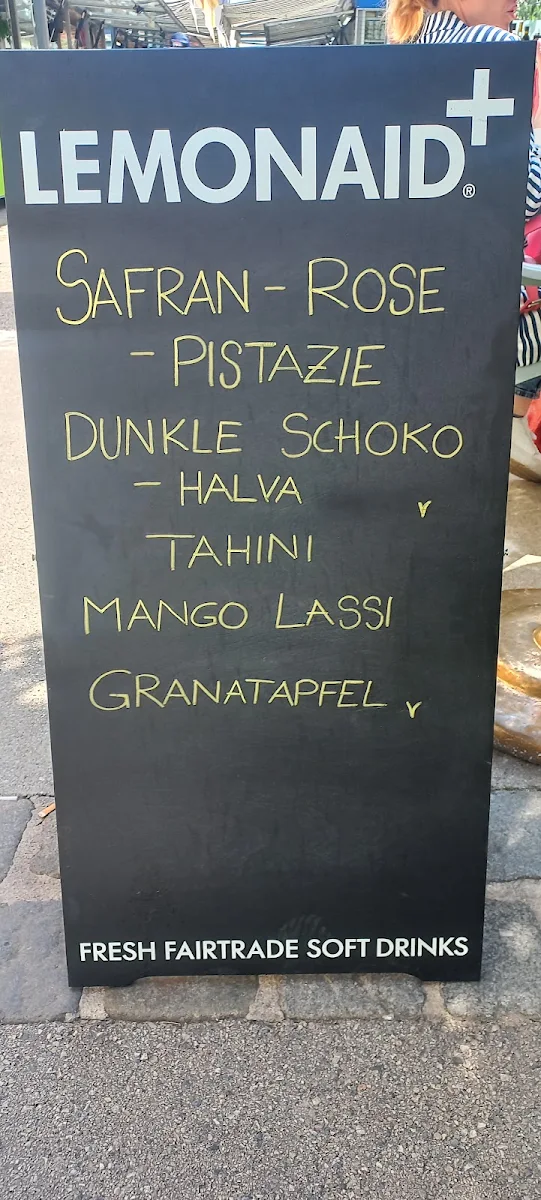 LEMONAID+®
SAFRAN - ROSE
- PISTAZIE
DUNKLE SCHOKO
- HALVA v
TAHINI
MANGO LASSI
GRANATAPFEL v
FRESH FAIRTRADE SOFT DRINKS